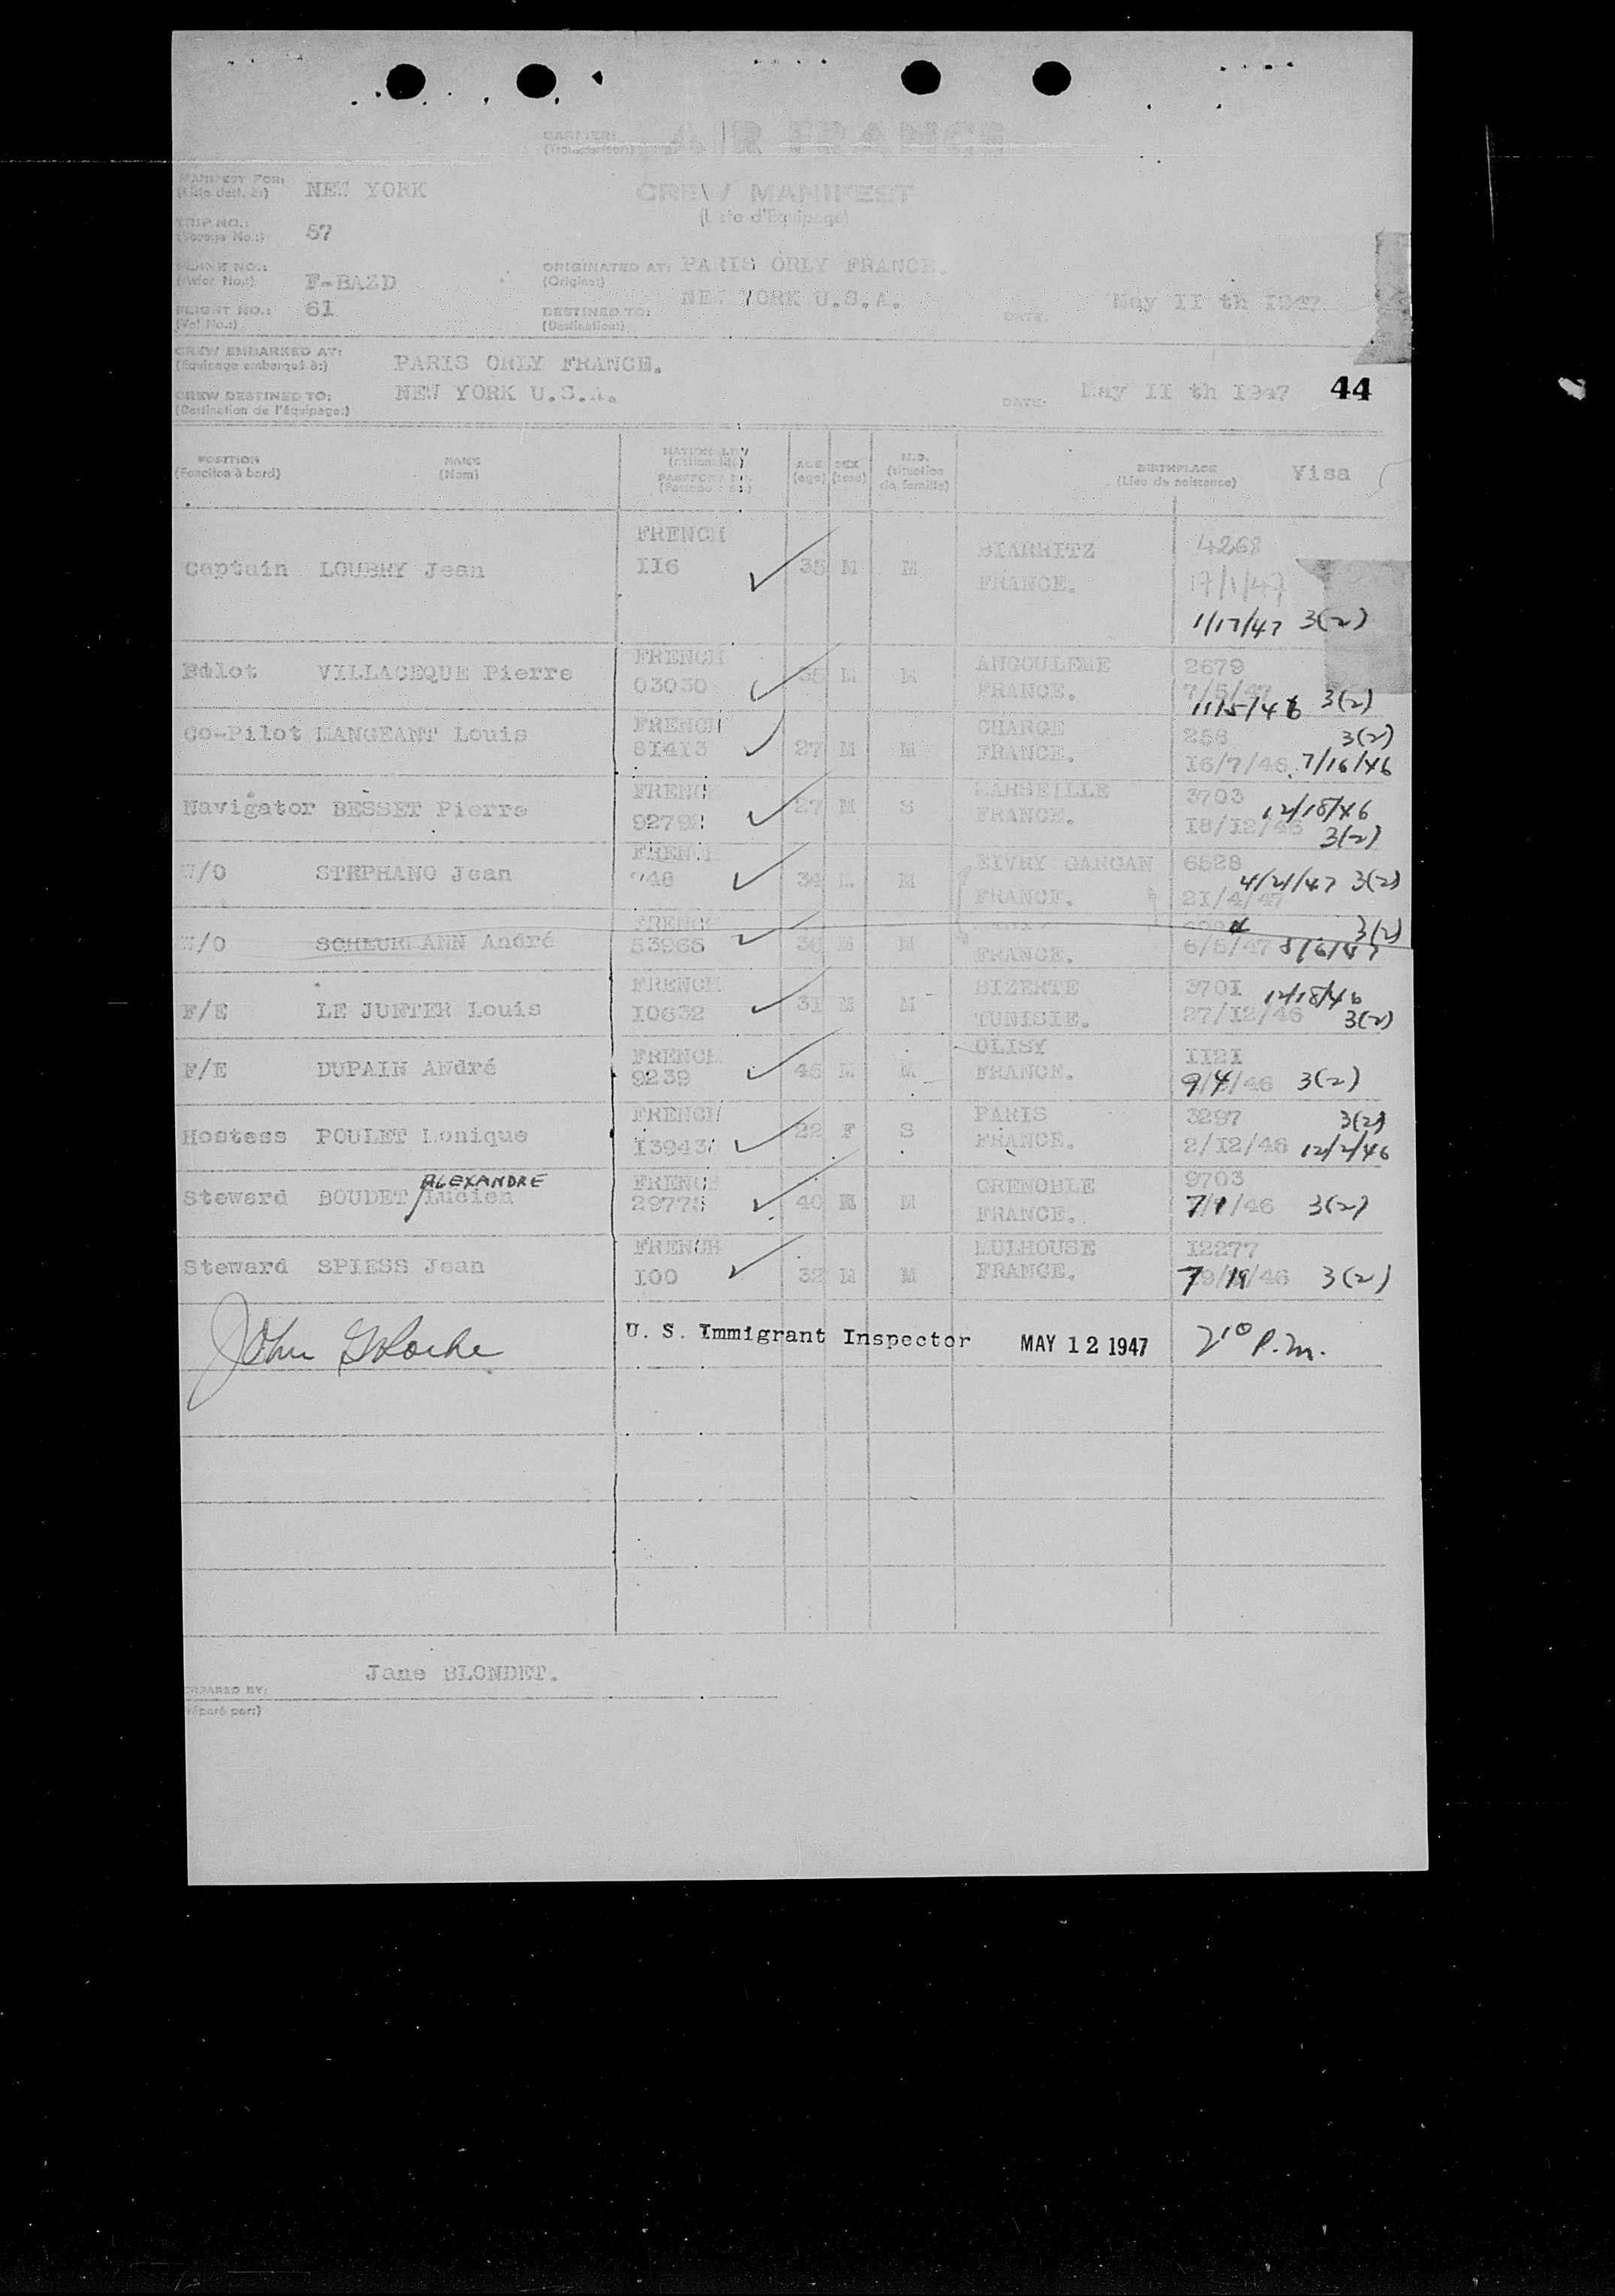 CARRIER: AIR FRANCE
(Transporteur)
MANIFEST FOR: NEW YORK CREW MANIFEST
(Liste dest. à:) (Liste d'Equipage)
TRIP NO.: 57
(Voyage No.:)
PLANE NO.: F-BAZD ORIGINATED AT: PARIS ORLY FRANCE.
(Avion No.:) (Origine:)
FLIGHT NO.: 61 DESTINED TO: NEW YORK U.S.A. DATE: May II th I947
(Vol No.:) (Destination:)
CREW EMBARKED AT: PARIS ORLY FRANCE.
(Equipage embarqué à:)
CREW DESTINED TO: NEW YORK U.S.A. DATE: May II th I947 44
(Destination de l'équipage:)
POSITION NAME NATIONALITY AGE SEX M.S. BIRTHPLACE Visa
(Fonction à bord) (Nom) (nationalité) (age) (sexe) (situation de famille) (Lieu de naissance)
PASSPORT NO.
FRENCH BIARRITZ 4268
Captain LOUBRY Jean II6 35 M M FRANCE. 17/1/47
1/17/47 3(2)
FRENCH ANGOULEME 2679
VILLACEQUE Pierre 03030 35 M M FRANCE. 7/5/47
11/5/46 3(2)
FRENCH CHARGE 268 3(2)
Co-Pilot MANGEANT Louis 8I4I3 27 M M FRANCE. I6/7/46 7/16/46
FRENCH MARSEILLE 3703 12/18/46
Navigator BESSET Pierre 9279 27 M S FRANCE. I8/I2/46 3(2)
FRENCH GARGAN 6528
W/O STEPHANO Jean 34 M M FRANCE. 2I/4/47 4/21/47 3(2)
FRENCH 3(2)
W/O SCHEURMANN André 53965 36 M M FRANCE. 6/5/47
FRENCH BIZERTE 370I 12/18/46
F/E LE JUNTER Louis I0632 3I M M TUNISIE. 27/I2/46 3(2)
FRENCH OLISY II2I
F/E DUPAIN ANdré 9239 46 M M FRANCE. 9/4/46 3(2)
FRENCH PARIS 3297 3(2)
Hostess POULET Monique I3943 22 F S FRANCE. 2/I2/46 12/2/46
ALEXANDRE FRENCH GRENOBLE 9703
Steward BOUDET / Lucien 2977 40 M M FRANCE. 7/1/46 3(2)
FRENCH MULHOUSE I2277
Steward SPIESS Jean I00 32 M M FRANCE. 7/19/46 3(2)
John U. S. Immigrant Inspector MAY 12 1947 2 10 P.M.
Jane BLONDET.
PREPARED BY:
(Préparé par:)